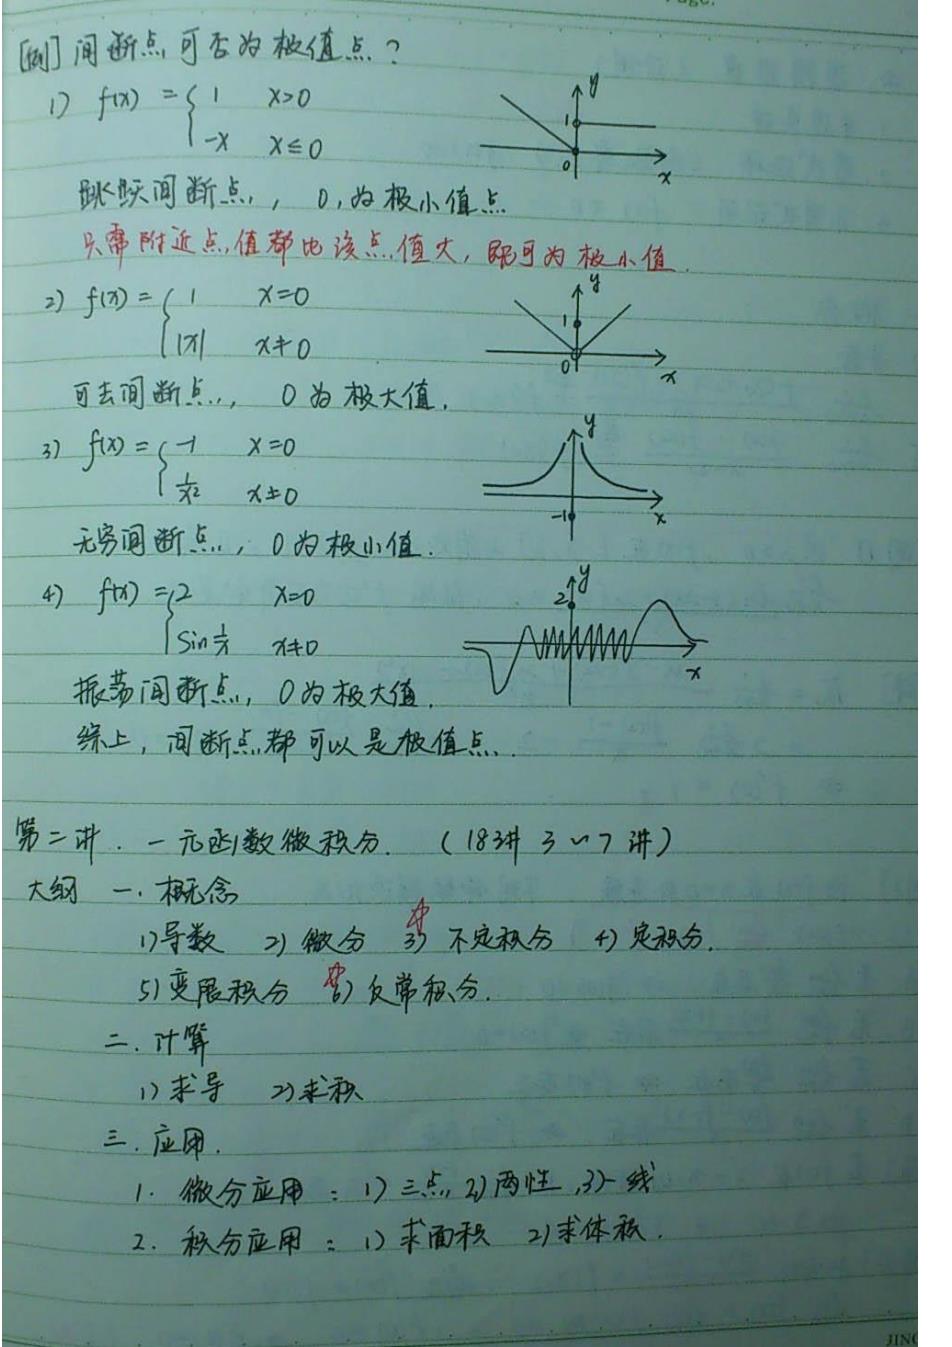 [例] 间断点可否为极值点?
1) f(x) = { 1 x>0
-x x≤0
y
1
0
x
跳跃间断点, 0为极小值点
只需附近点值都比该点值大, 即可为极小值.
2) f(x) = { 1 x=0
|x| x≠0
y
1
0
x
可去间断点, 0为极大值.
3) f(x) = { -1 x=0
1/x² x≠0
y
-1
x
无穷间断点, 0为极小值.
4) f(x) = { 2 x=0
Sin 1/x x≠0
y
2
x
振荡间断点, 0为极大值.
综上, 间断点都可以是极值点.
第二讲. 一元函数微积分. (18讲 3~7讲)
大纲 一. 概念
1)导数 2) 微分 3) 不定积分 4) 定积分.
5)变限积分 6) 反常积分.
二. 计算
1)求导 2)求积
三. 应用.
1. 微分应用: 1)三点, 2)两性, 3)一线
2. 积分应用: 1)求面积 2)求体积.